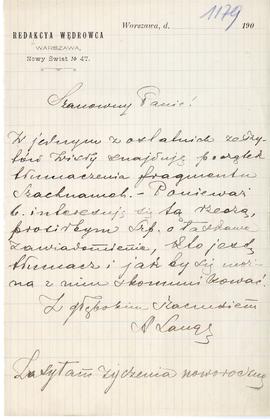 1179
REDAKCYA WĘDROWCA
WARSZAWA,
Nowy Świat № 47.
Warszawa, d. 190
Szanowny Panie!
W jednym z ostatnich zeszy-
tów Wisły znajduję początek
tłumaczenia fragmentu
Szachnameh. - Ponieważ
b. interesuję się tą rzeczą,
prosiłbym Szp. o łaskawe
zawiadomienie, kto jest
tłumacz i jak by się moż-
na z nim skomunikować.
Z głębokim szacunkiem
A Lange
Zasyłam życzenia noworoczne